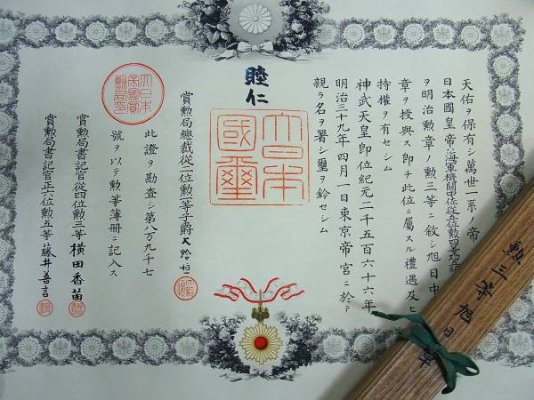 天佑ヲ保有シ萬世一系ノ帝
日本國皇帝ハ海軍機關中佐從五位勲四等功
ヲ明治勲章ノ勲三等ニ敘シ旭日中
章ヲ授與ス即チ此位ニ屬スル禮遇及ヒ
特權ヲ有セシム
神武天皇即位紀元二千五百六十六年
明治三十九年四月一日東京帝宮ニ於テ
親ラ名ヲ署シ璽ヲ鈐セシム
睦仁
大日本
國璽
賞勲局總裁從二位勲一等子爵大給恒
此證ヲ勘査シ第八万九千七
號ヲ以テ勲等簿冊ニ記入ス
賞勲局書記官從四位勲三等横田香苗
賞勲局書記官正六位勲五等藤井善言
勲三等旭日章